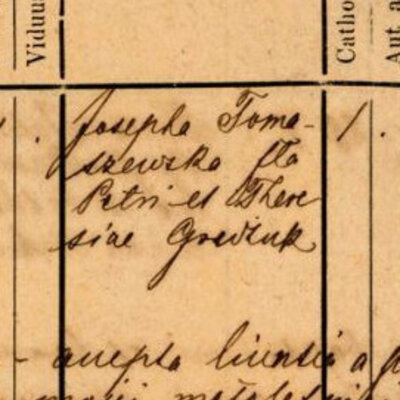 Vidua
Catho
Aut a
Josepha Toma-
szewska fta
Petri et There
siae Gredziuk
- accepta licentia a